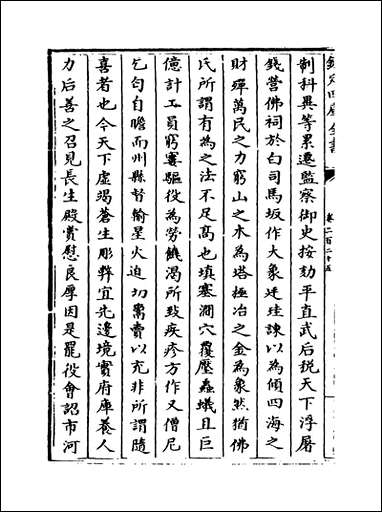 欽定四庫全書
卷一百二十五
制科異等累遷監察御史按劾平直武后税天下浮屠
錢營佛祠於白司馬坂作大象廷珪諫以為傾四海之
財殫萬民之力窮山之木為塔極冶之金為象然猶佛
氏所謂有為之法不足髙也填塞澗穴覆壓蟲蟻且巨
億計工員窮窶驅役為勞饑渴所致疾疹方作又僧尼
乞匄自贍而州縣督輸星火迫切鬻賣以充非所謂隨
喜者也今天下虚竭蒼生彫弊宜先邊境實府庫養人
力后善之召見長生殿賞慰良厚因是罷役會詔市河